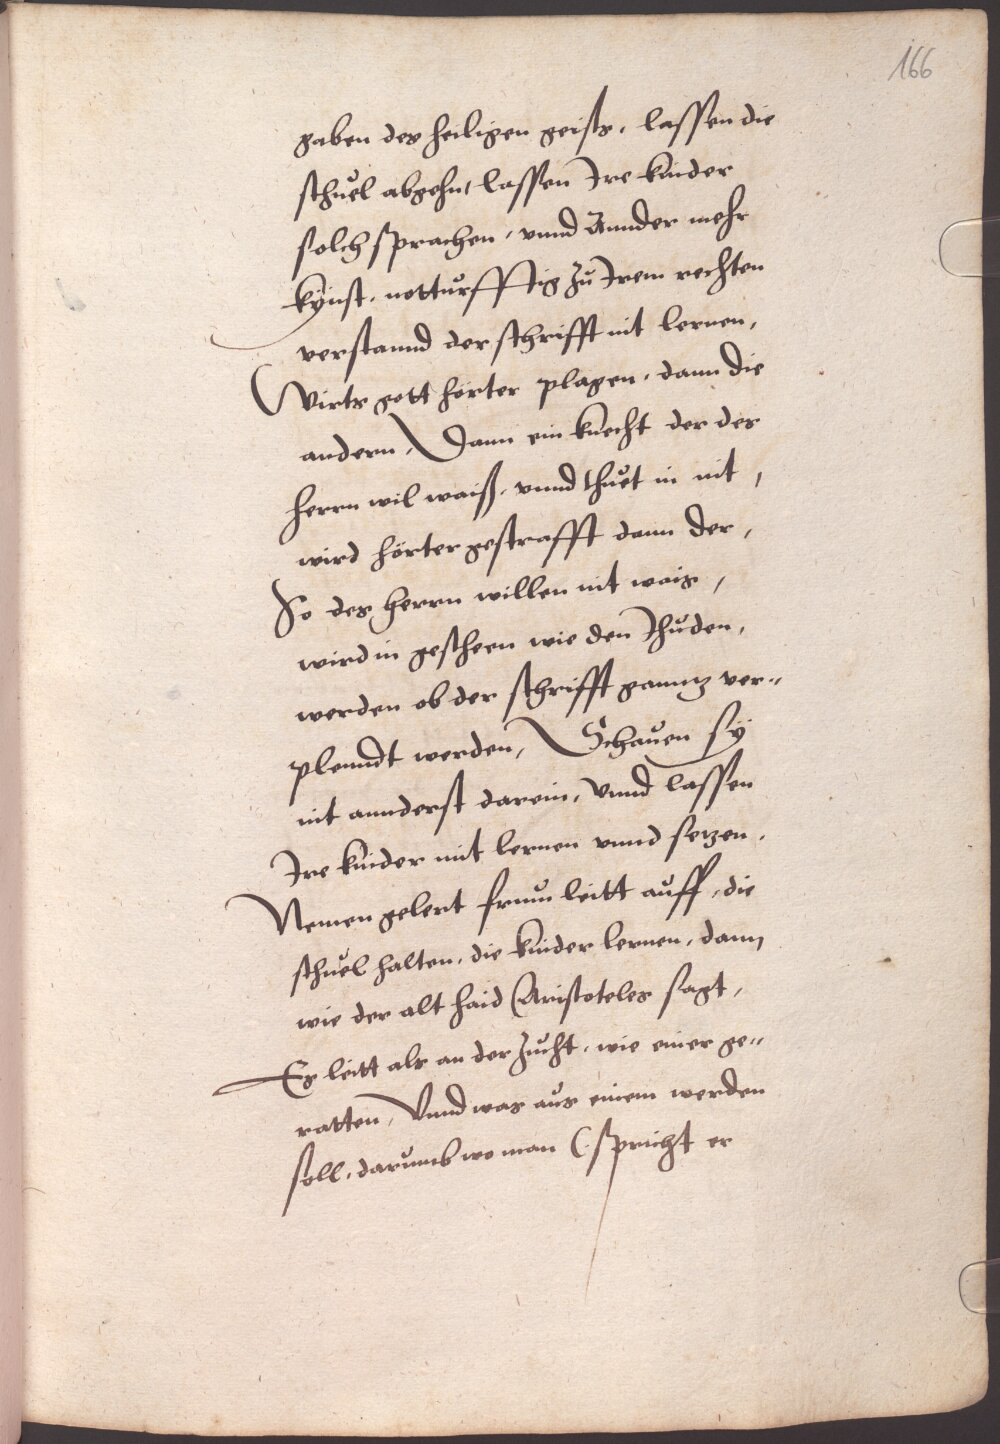 166
gaben des heiligen geists, lassen die
schuel abgehn, lassen Ire kinder
solch sprachen, vnnd Annder mehr
kynst, notturfftig zu Irem rechten
verstannd der schrifft nit lernen,
Wirts gott hörter plagen, dann die
andern, Dann ein knecht der des
herrn wil waiß, vnnd thuet in nit,
wird hörter gestrafft dann der,
So des herrn willen nit wais,
wird in gescheen wie den Jhuden,
werden ob der schrifft ganntz ver-
plenndt werden, Schauen sy
nit annderst darein, Vnnd lassen
Ire kinder mit lernen vnnd setzen.
Nemen gelert frum leitt auff, die
schuel halten, die kinder lernen, dann
wie der alt haid (Aristoteles sagt,
Es leitt als an der zucht, wie einer ge-
ratten, Vnnd was aus einem werden
soll, darumb wo man (spricht er